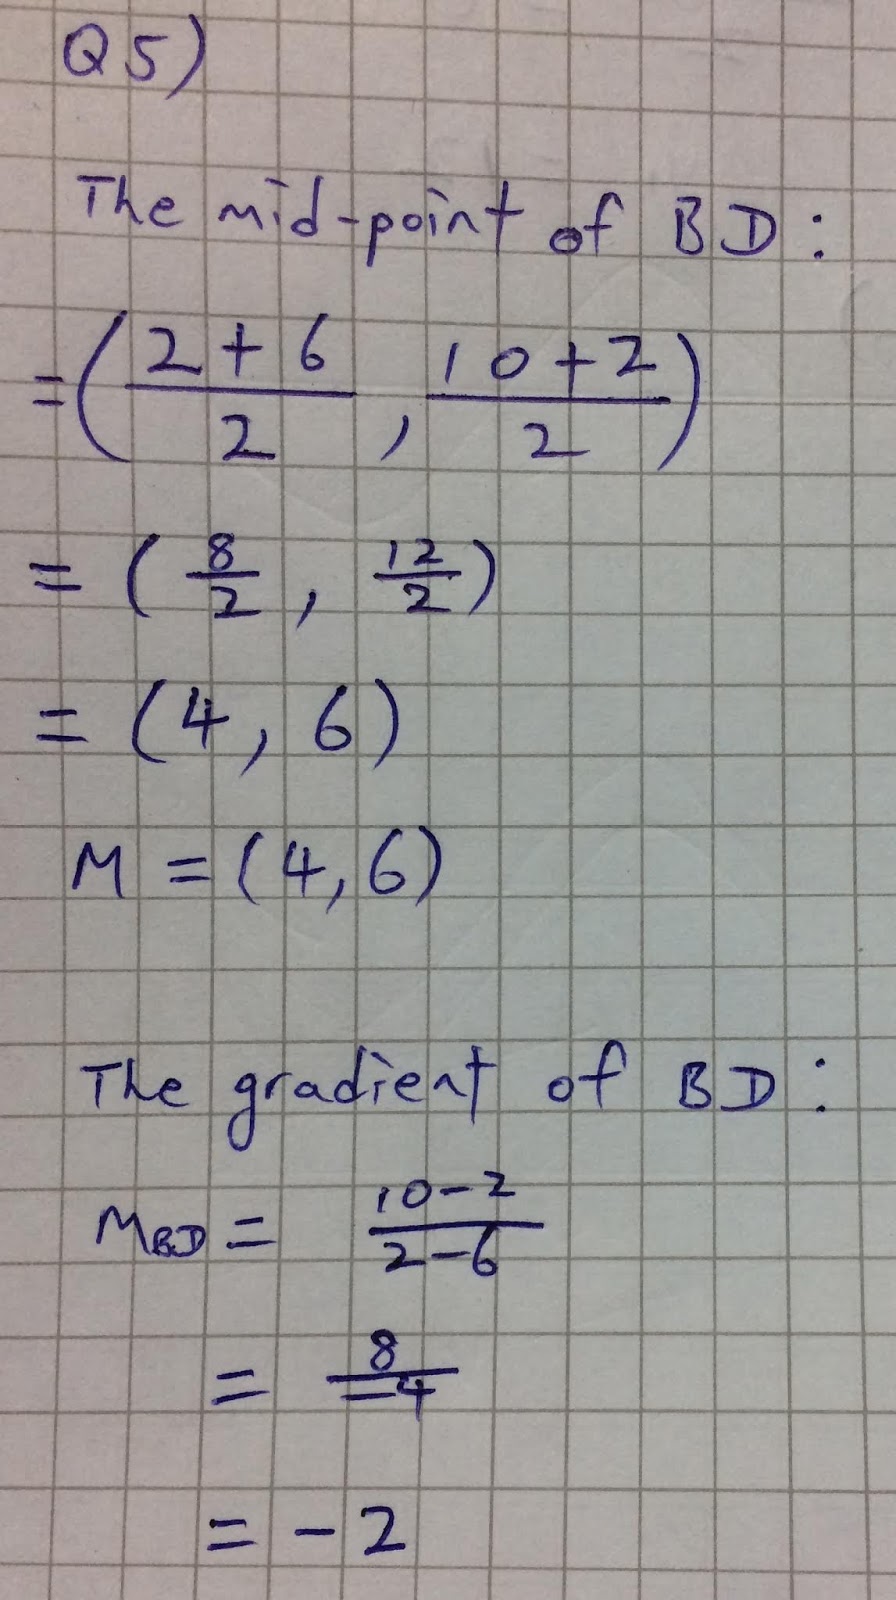 Q5)
The mid-point of BD:
= (2+6/2, 10+2/2)
= (8/2, 12/2)
= (4, 6)
M = (4, 6)
The gradient of BD:
M_BD = 10-2/2-6
= 8/-4
= -2